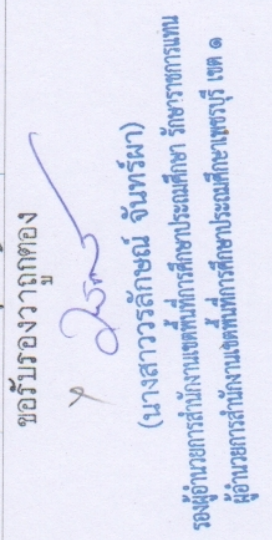 ขอรับรองว่าถูกต้อง
(นางสาววรลักษณ์ จันทร์ผา)
รองผู้อำนวยการสำนักงานเขตพื้นที่การศึกษาประถมศึกษา รักษาราชการแทน
ผู้อำนวยการสำนักงานเขตพื้นที่การศึกษาประถมศึกษาเพชรบุรี เขต ๑